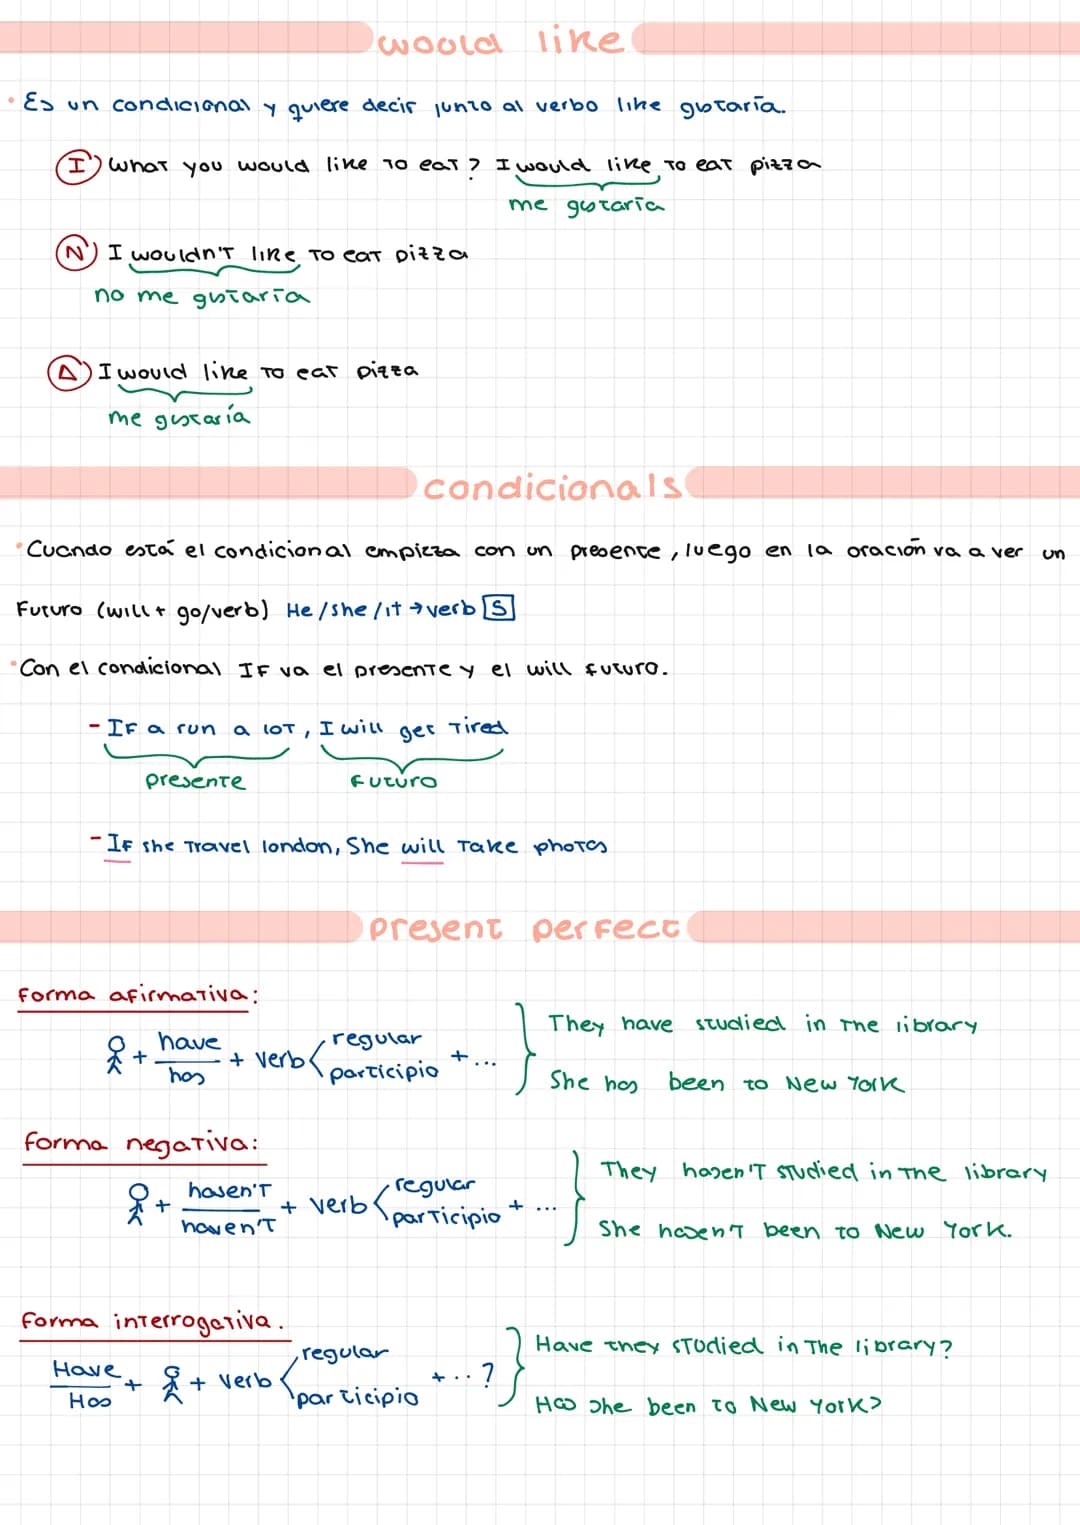 would like
• Es un condicional y quiere decir junto al verbo like gustaría.
I) What you would like to eat? I would like to eat pizza
me gustaría
N) I wouldn't like to eat pizza
no me gustaría
A) I would like to eat pizza
me gustaría
condicionals
• Cuando está el condicional empieza con un presente, luego en la oración va a ver un
Futuro (will + go/verb) He/she/it → verb S
• Con el condicional IF va el presente y el will futuro.
- IF a run a lot, I will get tired
presente futuro
- IF she travel london, She will take photos
present perfect
Forma afirmativa:
+ have
has + verb < regular
participio + ...
They have studied in the library
She has been to New York
Forma negativa:
+ hasen't
haven't + verb < regular
participio + ...
They hasen't studied in the library
She hasen't been to New York.
Forma interrogativa.
Have
Has + + verb < regular
participio + ..?
Have they studied in the library?
Has she been to New York?